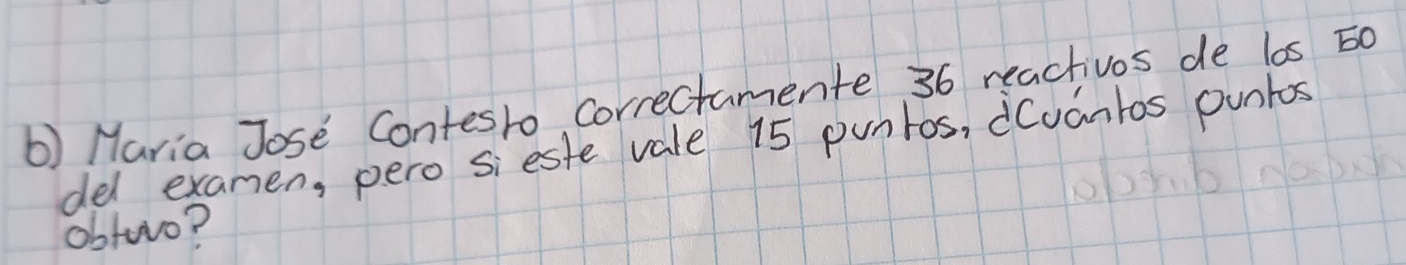 b) María José Contesto correctamente 36 reactivos de los 50
del examen, pero si este vale 15 puntos, ¿Cuántos puntos
obtuvo?